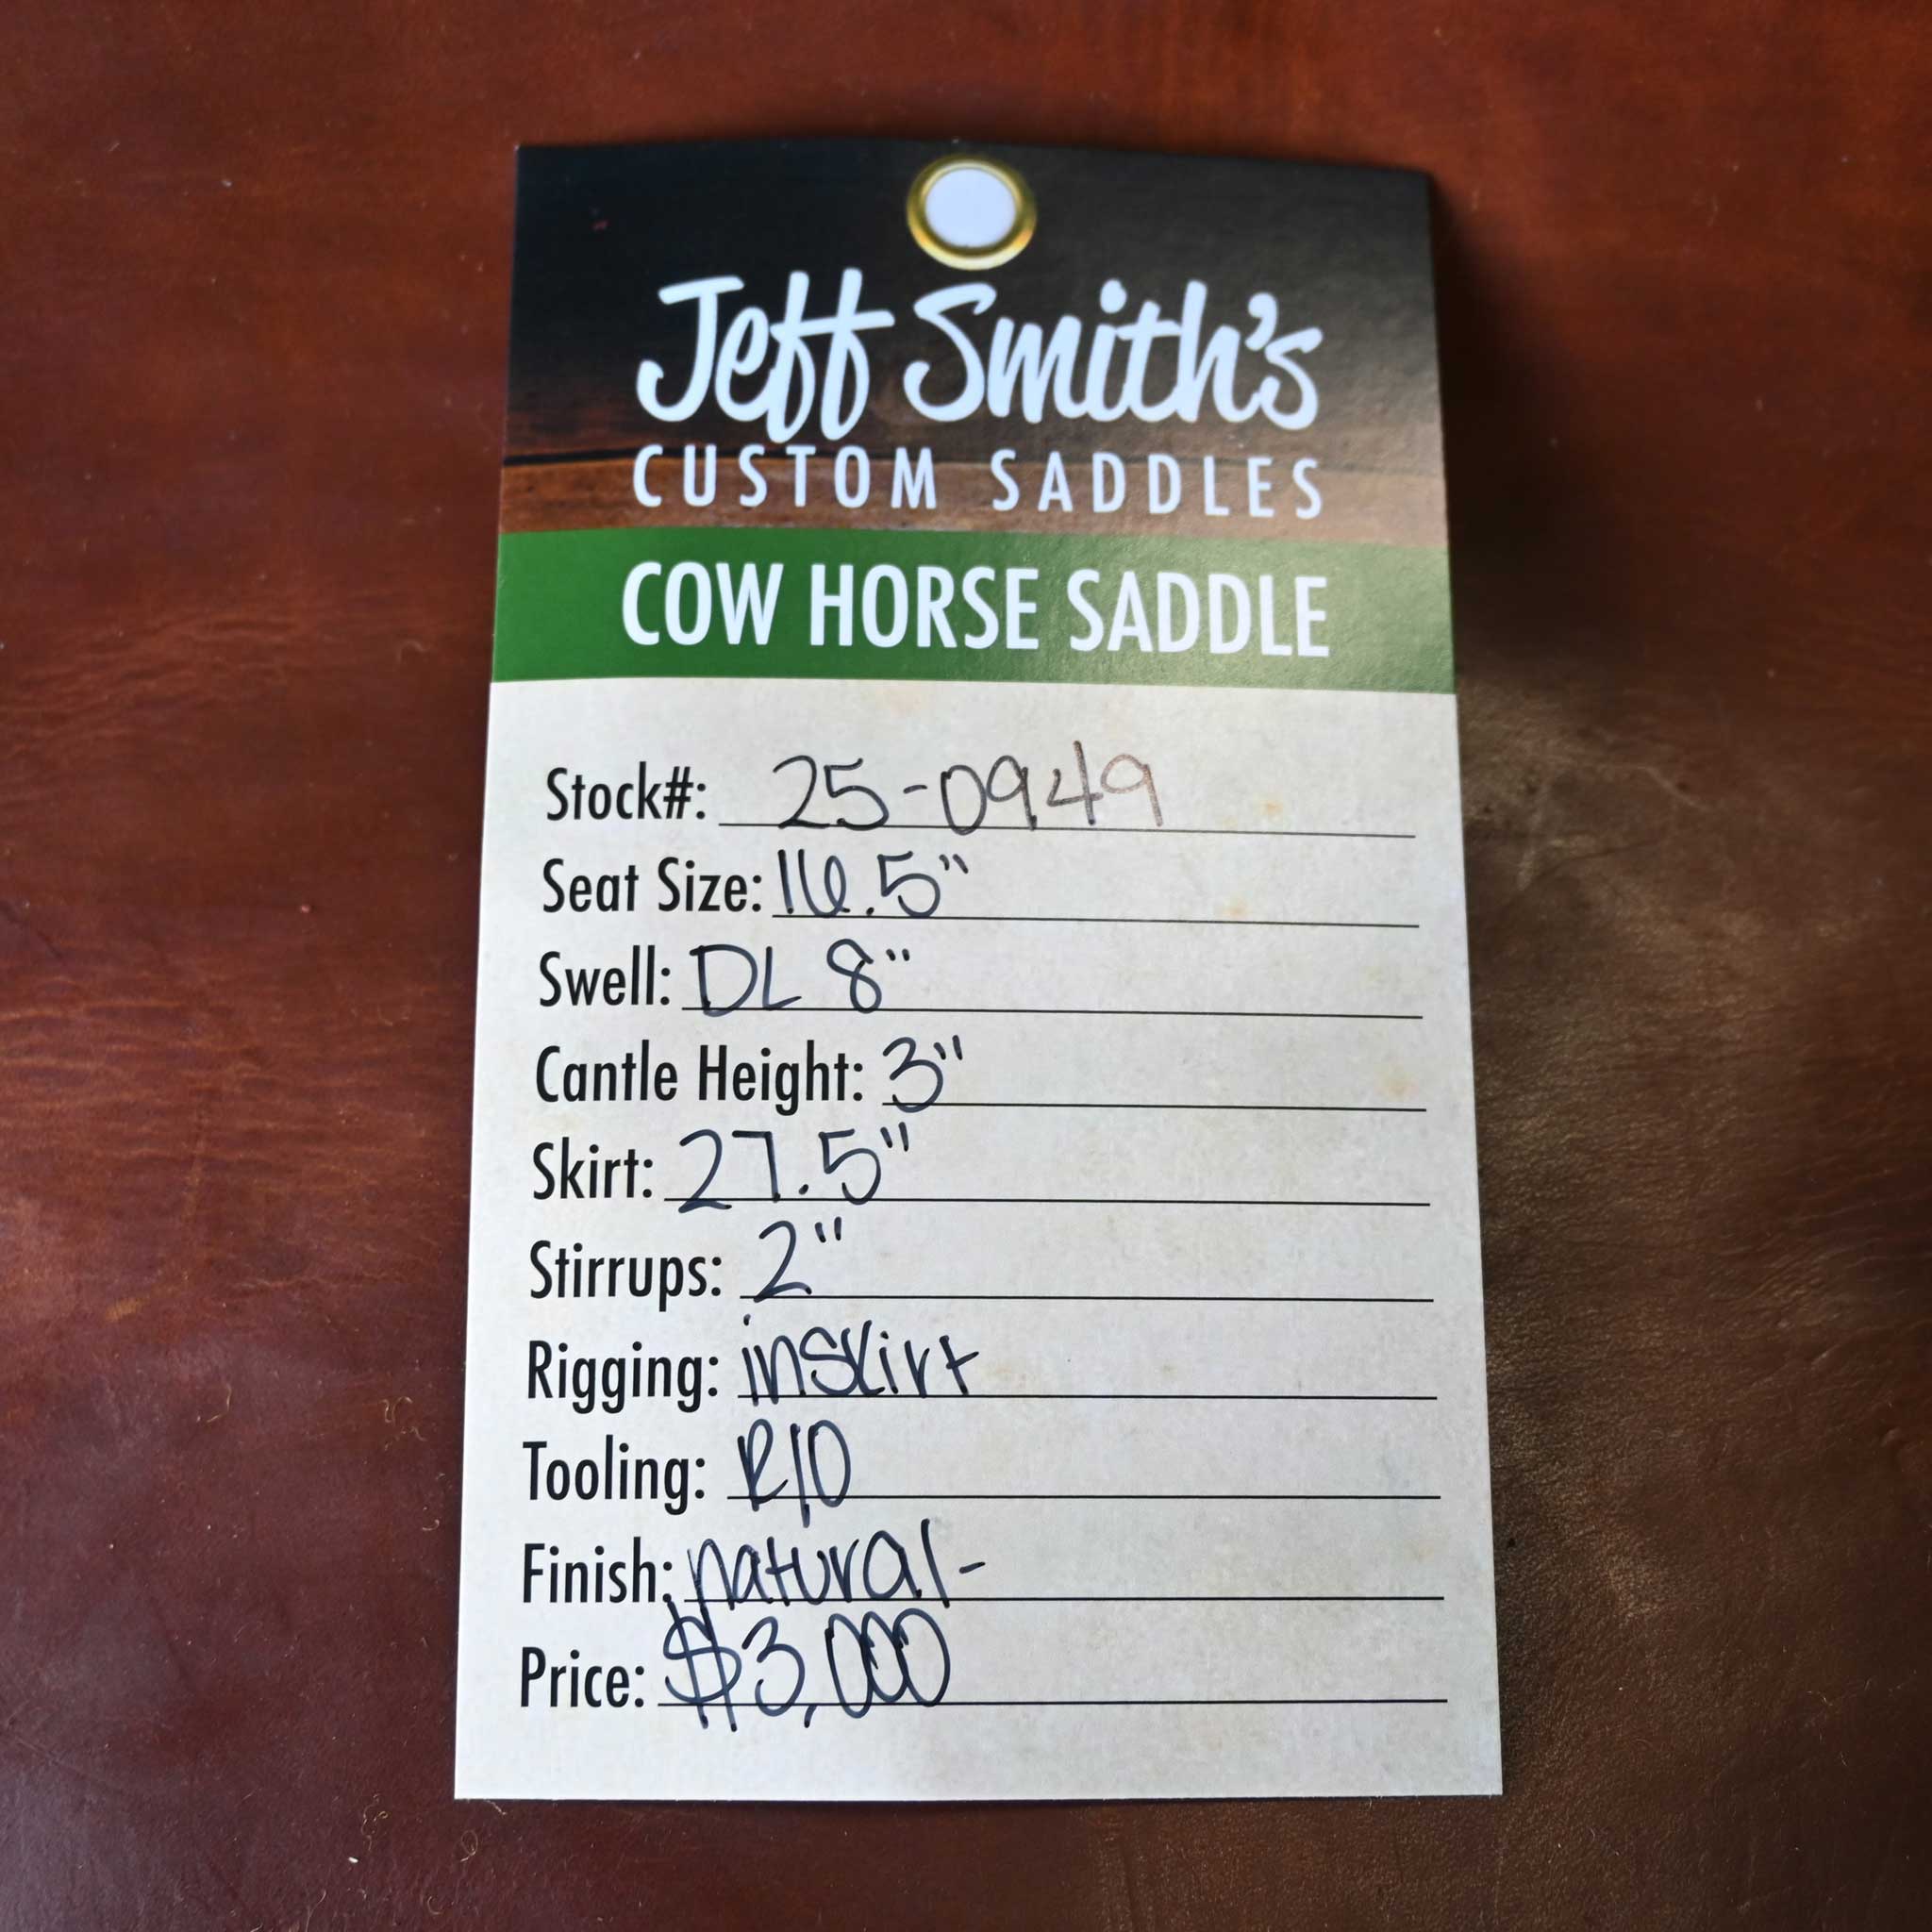 Jeff Smith's
CUSTOM SADDLES
COW HORSE SADDLE
Stock#: 25-0949
Seat Size: 16.5"
Swell: DL 8"
Cantle Height: 3"
Skirt: 27.5"
Stirrups: 2"
Rigging: inskirt
Tooling: R/O
Finish: natural-
Price: $3,000